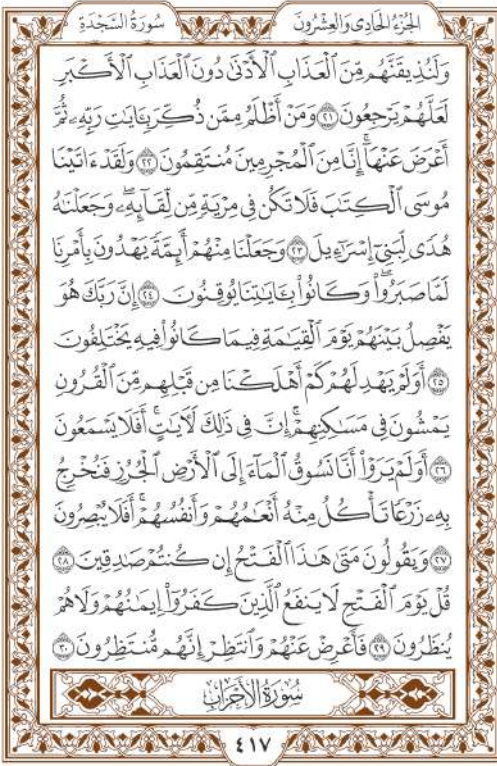 الجُزْءُ الحَادِي وَالعِشْرُونَ سُورَةُ السَّجْدَةِ
وَلَنُذِيقَنَّهُم مِّنَ ٱلْعَذَابِ ٱلْأَدْنَىٰ دُونَ ٱلْعَذَابِ ٱلْأَكْبَرِ
لَعَلَّهُمْ يَرْجِعُونَ ٢١ وَمَنْ أَظْلَمُ مِمَّن ذُكِّرَ بِـَٔايَٰتِ رَبِّهِۦ ثُمَّ
أَعْرَضَ عَنْهَآۚ إِنَّا مِنَ ٱلْمُجْرِمِينَ مُنتَقِمُونَ ٢٢ وَلَقَدْ ءَاتَيْنَا
مُوسَى ٱلْكِتَٰبَ فَلَا تَكُن فِى مِرْيَةٍ مِّن لِّقَآئِهِۦۖ وَجَعَلْنَٰهُ
هُدًى لِّبَنِىٓ إِسْرَٰٓءِيلَ ٢٣ وَجَعَلْنَا مِنْهُمْ أَئِمَّةً يَهْدُونَ بِأَمْرِنَا
لَمَّا صَبَرُوا۟ۖ وَكَانُوا۟ بِـَٔايَٰتِنَا يُوقِنُونَ ٢٤ إِنَّ رَبَّكَ هُوَ
يَفْصِلُ بَيْنَهُمْ يَوْمَ ٱلْقِيَٰمَةِ فِيمَا كَانُوا۟ فِيهِ يَخْتَلِفُونَ
٢٥ أَوَلَمْ يَهْدِ لَهُمْ كَمْ أَهْلَكْنَا مِن قَبْلِهِم مِّنَ ٱلْقُرُونِ
يَمْشُونَ فِى مَسَٰكِنِهِمْۚ إِنَّ فِى ذَٰلِكَ لَـَٔايَٰتٍۚ أَفَلَا يَسْمَعُونَ
٢٦ أَوَلَمْ يَرَوْا۟ أَنَّا نَسُوقُ ٱلْمَآءَ إِلَى ٱلْأَرْضِ ٱلْجُرُزِ فَنُخْرِجُ
بِهِۦ زَرْعًا تَأْكُلُ مِنْهُ أَنْعَٰمُهُمْ وَأَنفُسُهُمْۚ أَفَلَا يُبْصِرُونَ
٢٧ وَيَقُولُونَ مَتَىٰ هَٰذَا ٱلْفَتْحُ إِن كُنتُمْ صَٰدِقِينَ ٢٨
قُلْ يَوْمَ ٱلْفَتْحِ لَا يَنفَعُ ٱلَّذِينَ كَفَرُوٓا۟ إِيمَٰنُهُمْ وَلَا هُمْ
يُنظَرُونَ ٢٩ فَأَعْرِضْ عَنْهُمْ وَٱنتَظِرْ إِنَّهُم مُّنتَظِرُونَ ٣٠
سُورَةُ الأَحْزَابِ
٤١٧